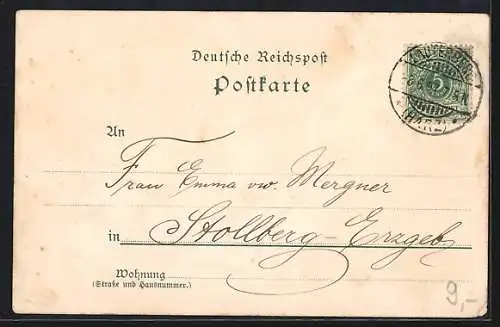 Deutsche Reichspost
Postkarte
LAUTERBERG
(HARZ)
5
An
Frau Emma vw. Mergner
in Stollberg-Erzgeb.
Wohnung
(Straße und Hausnummer.)
9,-